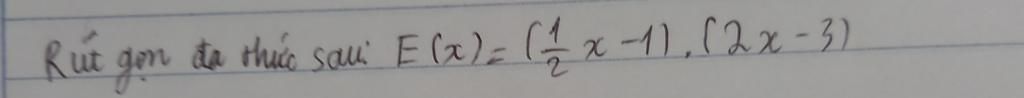 Rút gọn đa thức sau: E(x)=(1/2 x-1).(2x-3)